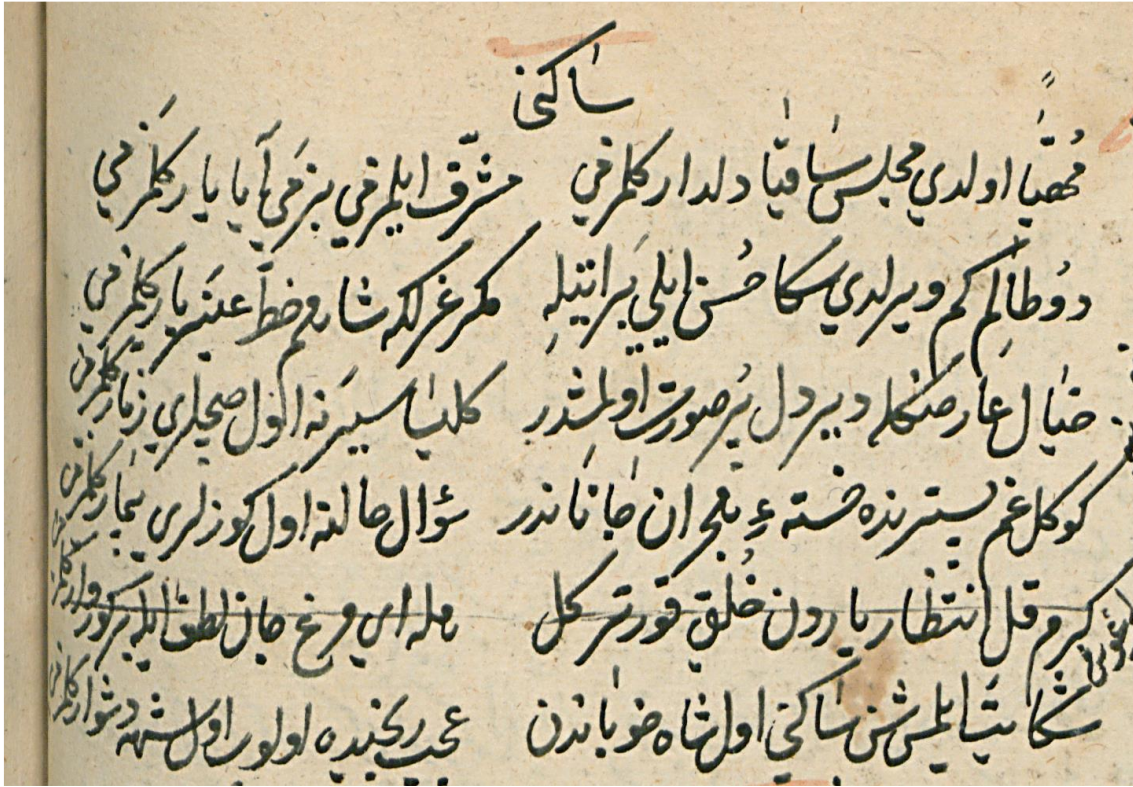 ساكنی
مُهیّا اولدي مجلس ساقیا دلدار كلمزمي مشرّف ایلمزمي بزمي آیا یار كلمزمي
دوُطالم كم ویرلدي سكا حُسن ایلي برابتیله مكر غرلكه شاهم خطّ عنبربار كلمزمي
خیال عارضكله دیر دل پُر صورت اولمشدر كلیسا سیرنه اول صچلري زنار كلمزمي
كوكل غم بسترنده خستهءِ هجران جاناندر سؤال حالنه اول كوزلري بیمار كلمزمي
كرم قل انتظار یاردن خلقي قورتر كل ایله اي مرغ جان لطف ایله بر كور وار كلمزمي
شكایت ایلمشسن ساكنی اول شاه خوباندن عجب رنجیده اولوب اول شهه دشوار كلمزمي